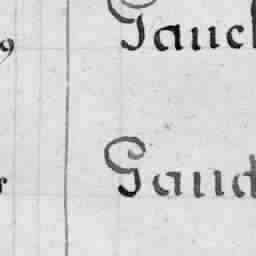 9 Gauch
r Gaud